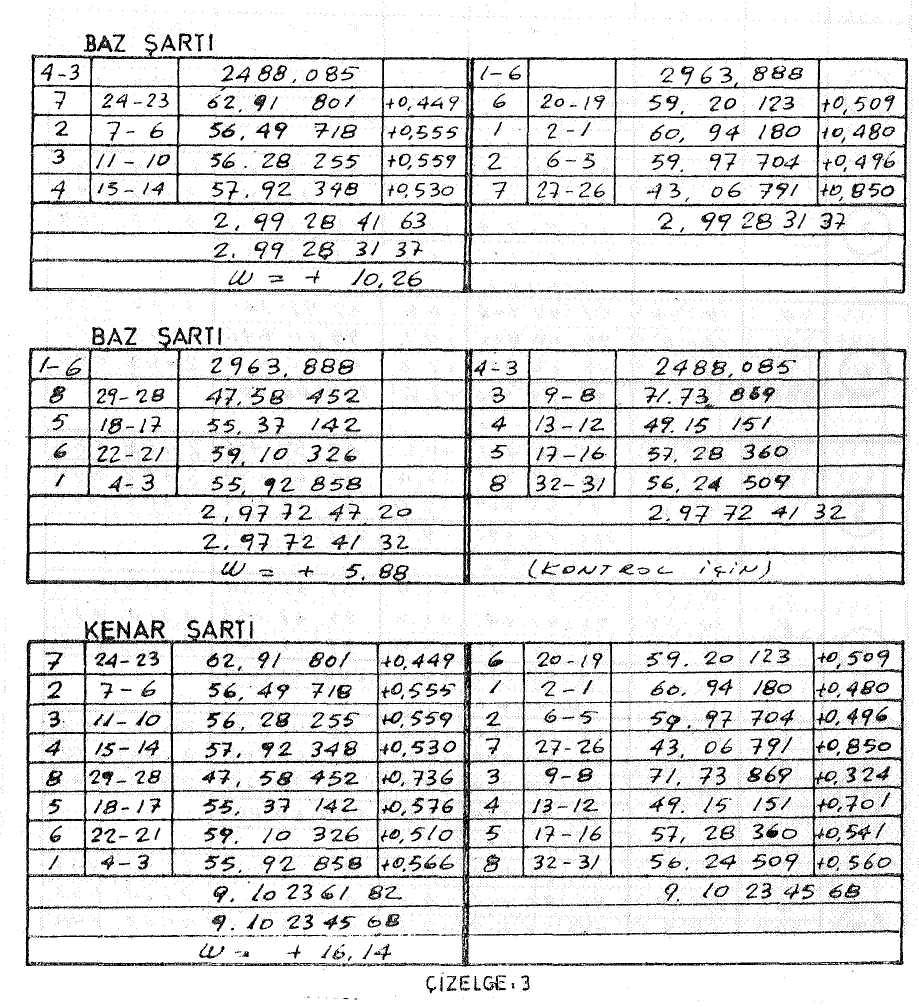 BAZ ŞARTI
4-3 2488,085 1-6 2963,888
7 24-23 62,91 801 +0,449 6 20-19 59. 20 123 +0,509
2 7-6 56,49 718 +0,555 1 2-1 60, 94 180 +0,480
3 11-10 56.28 255 +0,559 2 6-5 59. 97 704 +0,496
4 15-14 57.92 348 +0,530 7 27-26 43, 06 791 +0,850
2, 99 28 41 63 2, 99 28 31 37
2. 99 28 31 37
W = + 10,26
BAZ ŞARTI
1-6 2963,888 4-3 2488,085
8 29-28 47,58 452 3 9-8 71.73 869
5 18-17 55,37 142 4 13-12 49.15 151
6 22-21 59,10 326 5 17-16 57,28 360
1 4-3 55,92 858 8 32-31 56,24 509
2,97 72 47,20 2.97 72 41 32
2.97 72 41 32
W = + 5.88 (KONTROL İÇİN)
KENAR ŞARTİ
7 24-23 62,91 801 +0,449 6 20-19 59.20 123 +0,509
2 7-6 56,49 718 +0,555 1 2-1 60.94 180 +0,480
3 11-10 56,28 255 +0,559 2 6-5 59,97 704 +0,496
4 15-14 57,92 348 +0,530 7 27-26 43,06 791 +0,850
8 29-28 47,58 452 +0,736 3 9-8 71,73 869 +0,324
5 18-17 55,37 142 +0,576 4 13-12 49.15 151 +0,701
6 22-21 59.10 326 +0,510 5 17-16 57,28 360 +0,541
1 4-3 55,92 858 +0,566 8 32-31 56.24 509 +0,560
9.10 23 61 82 9.10 23 45 68
9.10 23 45 68
W = + 16,14
ÇİZELGE:3